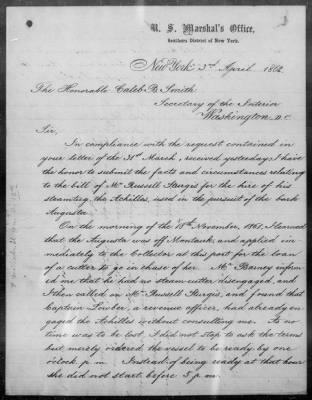 U. S. Marshal's Office,
Southern District of New York.
New York 3rd April 1862
The Honorable Caleb B. Smith
Secretary of the Interior
Washington D.C.
Sir,
In compliance with the request contained in
your letter of the 31st March, received yesterday, I have
the honor to submit the facts and circumstances relating
to the bill of Mr Russell Sturgis for the hire of his
steamtug, the Achilles, used in the pursuit of the bark
Augusta.
On the morning of the 18th November, 1861, I learned
that the Augusta was off Montauk, and applied im
mediately to the Collector at this port for the loan
of a cutter to go in chase of her. Mr Barney inform
ed me that he had no steam cutter disengaged, and
I then called on Mr Russell Sturgis, and found that
Captain Lowber, a revenue officer, had already en
gaged the Achilles without consulting me. As no
time was to be lost I did not stop to ask the terms
but merely ordered the vessel to be ready by one
o'clock p. m. Instead of being ready at that hour
she did not start before 5 p. m.